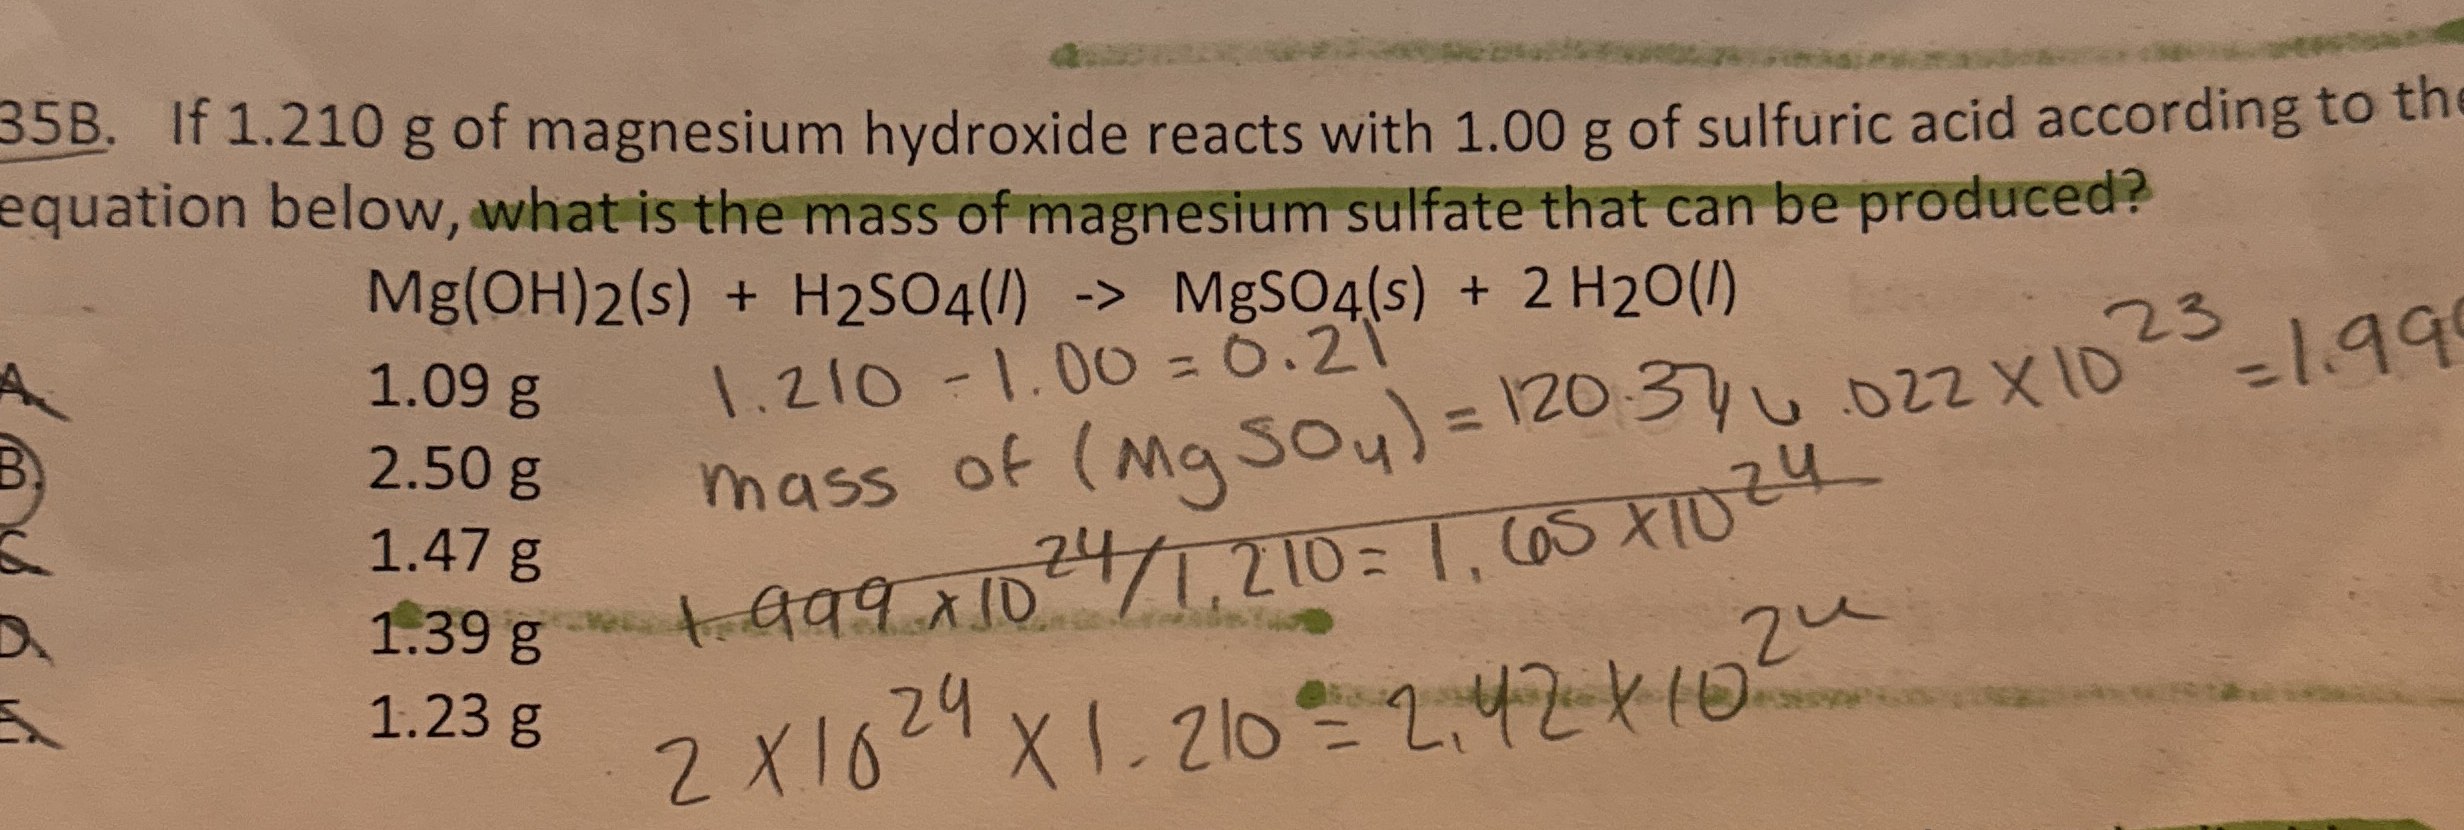 35B. If 1.210 g of magnesium hydroxide reacts with 1.00 g of sulfuric acid according to the
equation below, what is the mass of magnesium sulfate that can be produced?
Mg(OH)2(s) + H2SO4(l) -> MgSO4(s) + 2 H2O(l)
A. 1.09 g
B. 2.50 g
C. 1.47 g
D. 1.39 g
E. 1.23 g
1.210 - 1.00 = 0.21
mass of (MgSO4) = 120.37 6.022 X 10 23 = 1.99
1.999 x 10 24 / 1.210 = 1.65 X 10 24
2 X 10 24 X 1.210 = 2.42 X 10 24